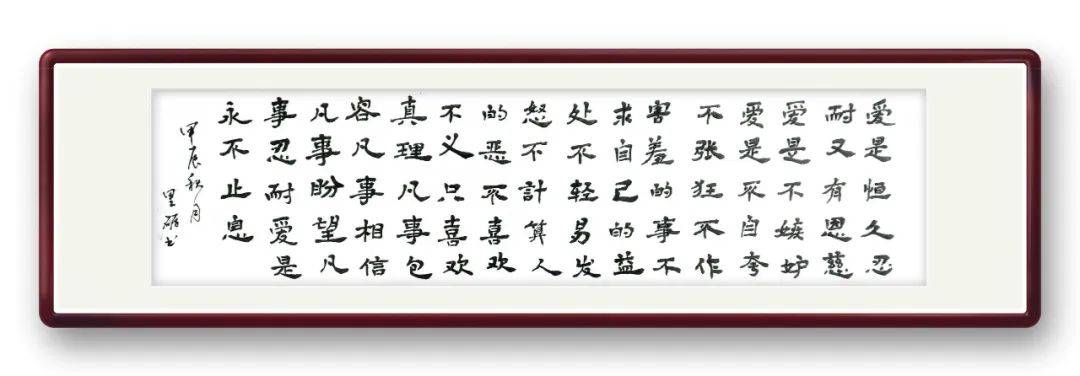 愛是恒久忍
耐又有恩慈
愛是不嫉妒
愛是不自夸
不张狂不作
害羞的事不
求自己的益
处不轻易发
怒不計算人
的恶不喜欢
不义只喜欢
真理凡事包
容凡事相信
凡事盼望凡
事忍耐愛是
永不止息
甲辰秋月
里书